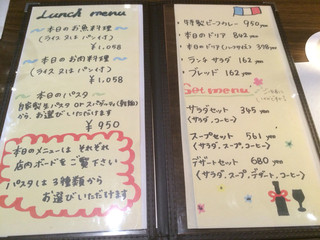 Lunch menu
・本日のお魚料理
(ライス又はパン付)
¥1,058
・本日のお肉料理
(ライス又はパン付)
¥1,058
・本日のパスタ
自家製生パスタ or スパゲッティ(乾麺)
から お選びいただけます
¥950
本日のメニューは それぞれ
店内ボードを ご覧下さい
パスタは 3種類から
お選びいただけます
・特製ビーフカレー 950yen
・本日のドリア 842yen
・本日のドリア(ハーフサイズ) 378yen
・ランチサラダ 162yen
・ブレッド 162yen
Set menu
サラダセット 345yen
(サラダ、コーヒー)
スープセット 561yen
(サラダ、スープ、コーヒー)
デザートセット 680yen
(サラダ、スープ、デザート、コーヒー)